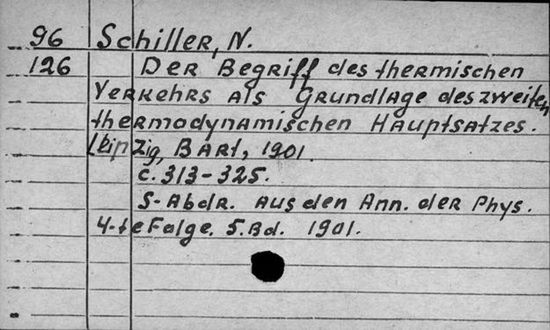 96 Schiller, N.
126 Der Begriff des thermischen
Verkehrs als Grundlage des zweiten
thermodynamischen Hauptsatzes.
Leipzig, Bart, 1901.
c. 313-325.
S-Abdr. aus den Ann. der Phys.
4-te Folge. 5. Bd. 1901.